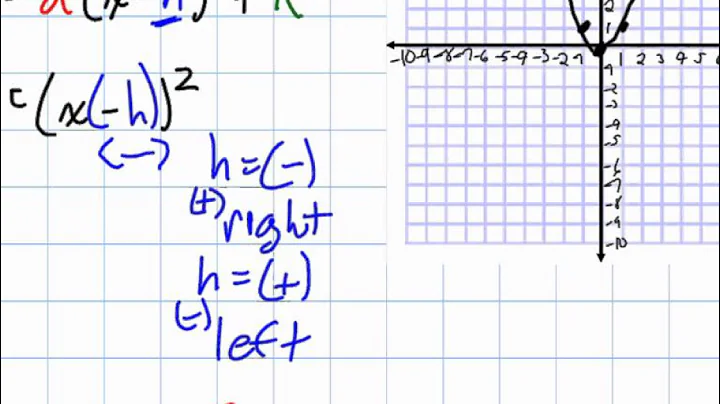 = (x(-h))²
<—>
h = (-)
(+) right
h = (+)
(-) left
2
1
-10 -9 -8 -7 -6 -5 -9 -3 -2 -1 1 2 3 4 5
-2
-3
-4
-5
-6
-7
-8
-9
-10